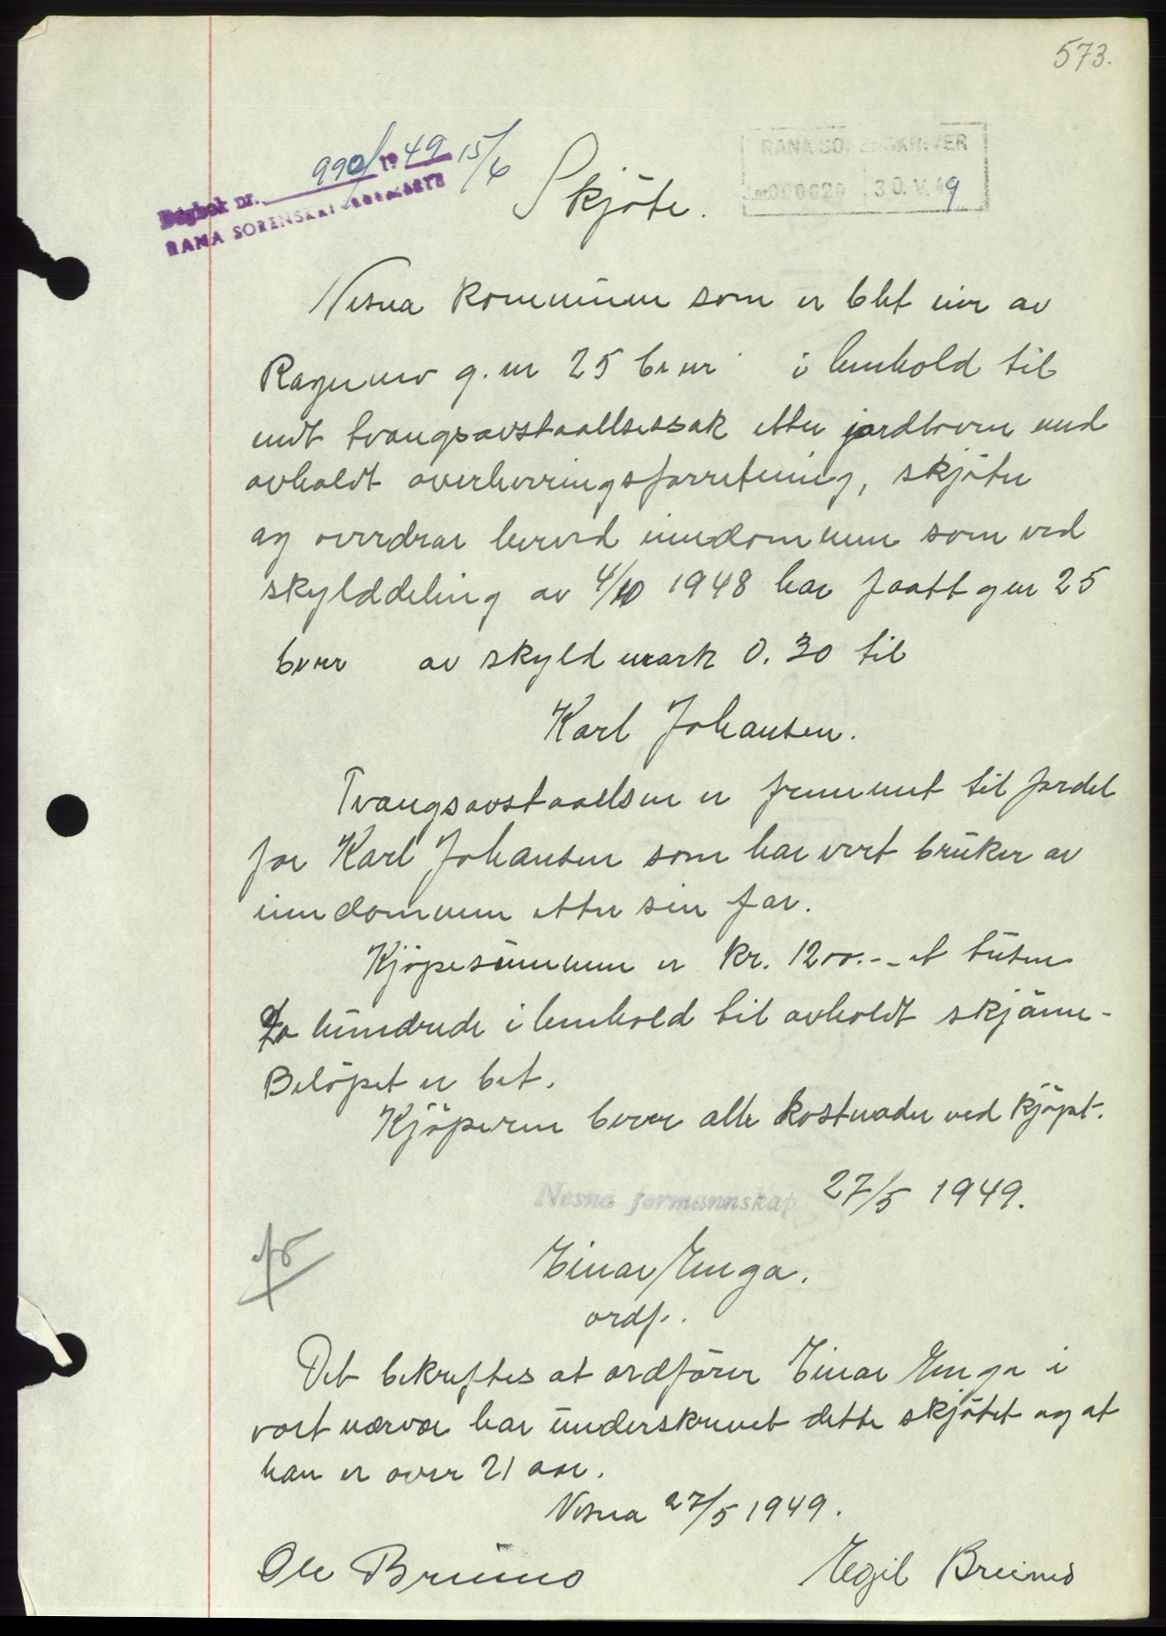 573.
Dagbok nr. 990/ 1949 15/6
RANA SORENSKRIVEREMBETE
RANA SORENSKRIVER
Jnr 000629 . 30.V.49
Skjöte.
Nesna kommune som er blit eier av
g.nr 25 br nr i henhold til
endt tvangsavstaaelsessak etter jordloven med
avholdt overhevningsforretning, skjöter
og overdrar herved eiendommen som ved
skylddeling av 4/10 1948 har faatt gnr 25
brnr av skyld mark 0.30 til
Karl Johansen.
Tvangsavstaaelsen er fremmet til fordel
for Karl Johansen som har vert bruker av
eiendommen etter sin far.
Kjöpesummen er kr. 1200.-- et tusen
to hundrede i henhold til avholdt skjönn-
Belöpet er bet.
Kjöperen berer alle kostnader ved kjöpet.
Nesna formannskap 27/5 1949.
Einar Enga.
ordf.
Det bekreftes at ordförer Einar Enga i
vort nærvær har underskrevet dette skjötet og at
han er over 21 aar.
Nesna 27/5 1949.
Ole Egil